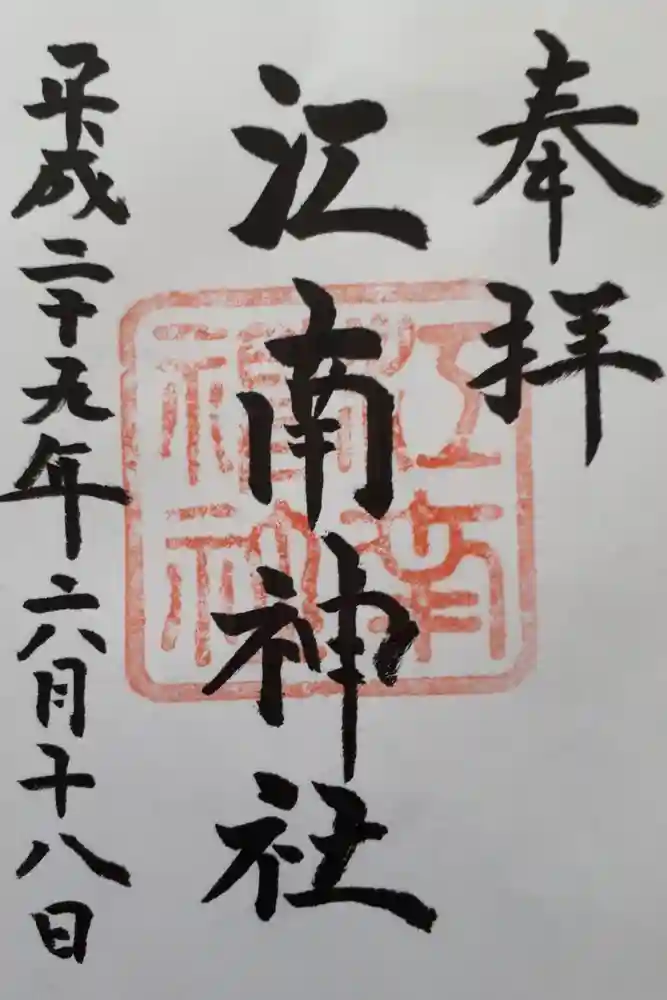 奉拝
江南神社
平成二十九年六月十八日